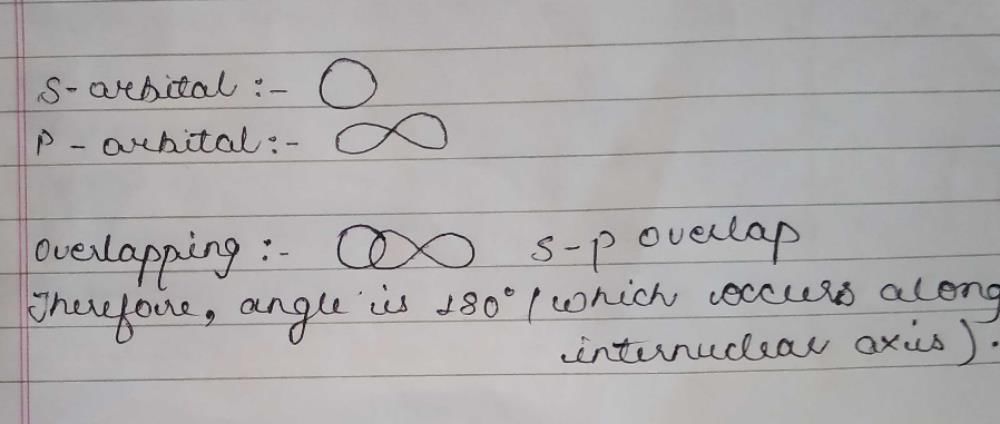 s-orbital :-
p - orbital :-
overlapping :- s-p overlap
Therefore, angle is 180° (which occurs along
internuclear axis).